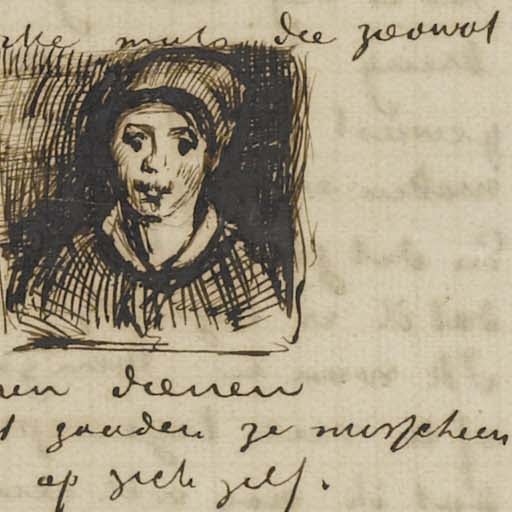 muts die zoowel
dienen
zouden ze misschien
op zich zelf.